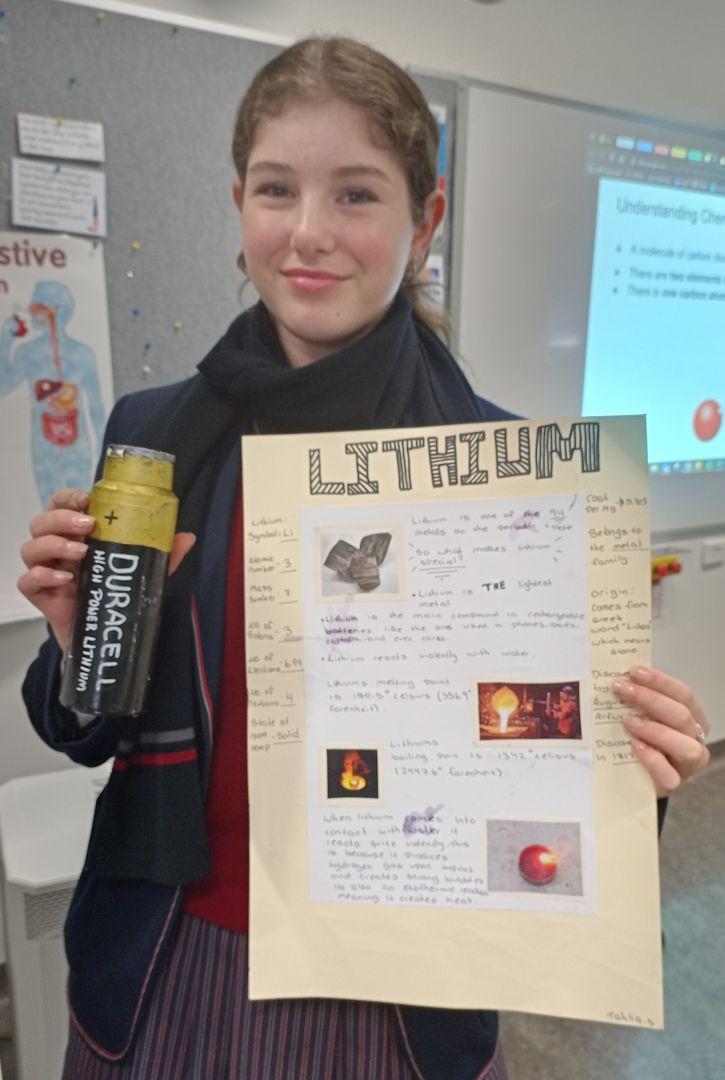 stive
Understanding Chem
A molecule of carbon dio
There are two elements
There is one carbon ato
+
DURACELL
HIGH POWER LITHIUM
LITHIUM
Lithium:
Symbol: Li
Atomic
number - 3
Mass
number - 7
no. of
Protons - 3
no. of
Electrons - 6.94
no. of
Neutrons - 4
State at
room - Solid
temp
Lithium is one of the 94
metals on the periodic table
So what makes lithium
special?
• Lithium is THE lightest
metal
• Lithium is the main compound in rechargeable
batteries like the ones used in phones, ipads,
laptops and even cars.
• Lithium reacts violently with water.
Lithiums melting point
is 180.5° celsius (356.9°
farenheit).
Lithiums
boiling poin is 1342° celsius
(2447.6° farenheit).
When lithium comes into
contact with water it
reacts quite violently, this
is because it produces
hydrogen gas upon impact
and creates strong bubbles
its also an exothermic reaction
meaning it creates heat.
Cost
Per Kg
Belongs to
the metal
family.
Origin:
comes from
Greek
word "Lithos"
which means
stone
Discov
by
August
Arfw
Discov
in 1817
Tahlia.S